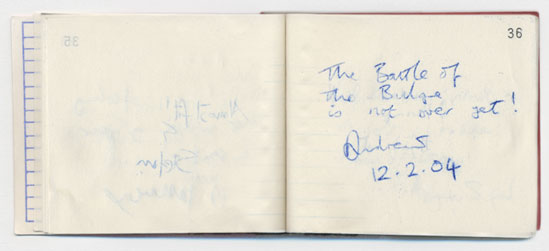 36
The Battle of
the Bulge
is not over yet!
Andrew S
12.2.04